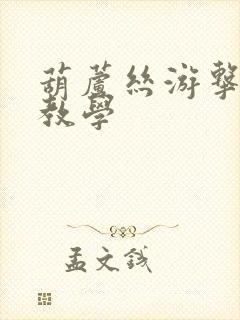 葫蘆絲游擊
教學
孟文錢